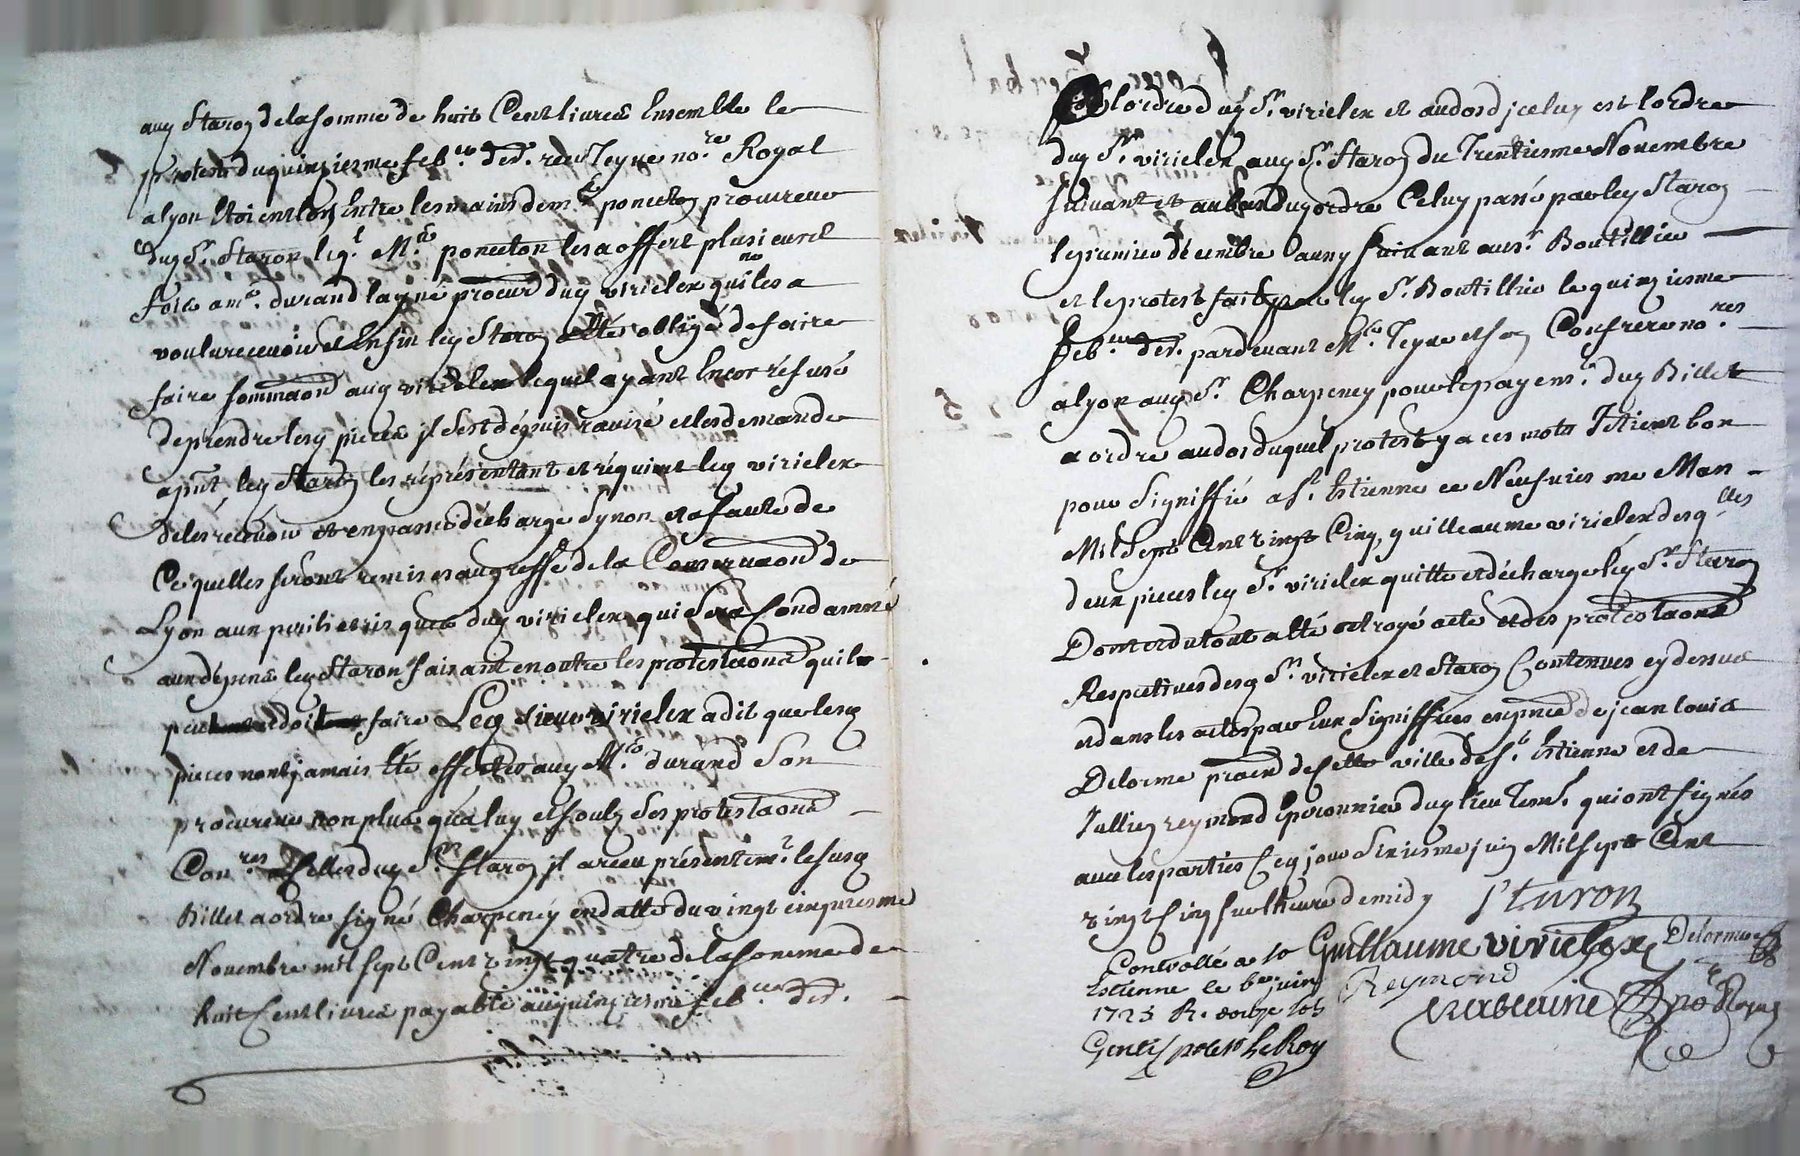 auq Staron de la somme de huit Cent livres Ensemble le
protest du quinziesme feb.er der. receu Teyve no.re Royal
a lyon Etoient Entre les mains de m.e ponceton procureur
duq S.r Staron leq.l M.e ponceton les a offert plusieurs
fois a m.e durand layné procur duq viricler qui ne les a
voulu recevoir et Enfin leq Staron a Eté obligé de faire
faire sommaon auq viricler lequel ayant Encor réfusé
de prendre lesq pieces jl s'est dépuis ravisé et les demande
a pnt leq Staron les réprésentant et réquiert leq viricler
de les récévoir et en passer décharge sy non et a faute de
Ce quelles seront remises au greffe de la Conservaon de
Lyon aux perils et risques duq viricler qui sera Condamné
aux dépens leq Staron faisant en outre les protestaons quil
peut et doit faire Leq sieur viricler a dit que lesq
pieces nont jamais Eté offertes auq M.e durand Son
procureur non plus qu'a luy et soubz Ses protestaons
Con.res a Celles duq S.r Staron jl a receu présentem.t le susq
Billet a ordre signé Charpeney en datte du vingt cinquiesme
Novembre mil sept Cent vingt quatre de la somme de
huit Cent livres payable au quinziesme feb.er der.
a lordre duq S.r viricler et au dos d'jceluy est lordre
duq S.r viricler auq S.r Staron du Trentiesme Novembre
suivant et au bas duq ordre Celuy passé par leq Staron
le premier décembre auq suivant au s.r Boutillier
et le protest fait par leq S.r Boutillier le quinziesme
feb.er der. pardevant M.e Teyve et son Confrere no.res
a lyon auq S.r Charpeney pour le payem.t duq Billet
a ordre au dos duquel protest y a ces mots Jétient bon
pour signiffié a S.t Estienne ce Neufviesme May
Mil Sept Cent vingt Cinq, guilleaume viricler desq.lles
deux pieces leq S.r viricler quitte et décharge leq S.r Staron
Dont et du tout a Eté octroyé acte et des protestaons
Respectives desq S.rs viricler et Staron Contenues cy dessus
et dans les actes par Eux signiffiés en pnce de jean louis
Delorme pratn de Cette ville de S.t Estienne et de
Jullien reymond Eperonnier duq lieu tem.s qui ont signés
avec les parties Ceq jour sixiesme juin Mil sept Cent
vingt Cinq sur lheure de midy Staron
Guillaume viricler Delorme
Controllé a St
Estienne le 6e juin Reymond
1725 R. douze sols
Genti pr le Roy
no.re Royal